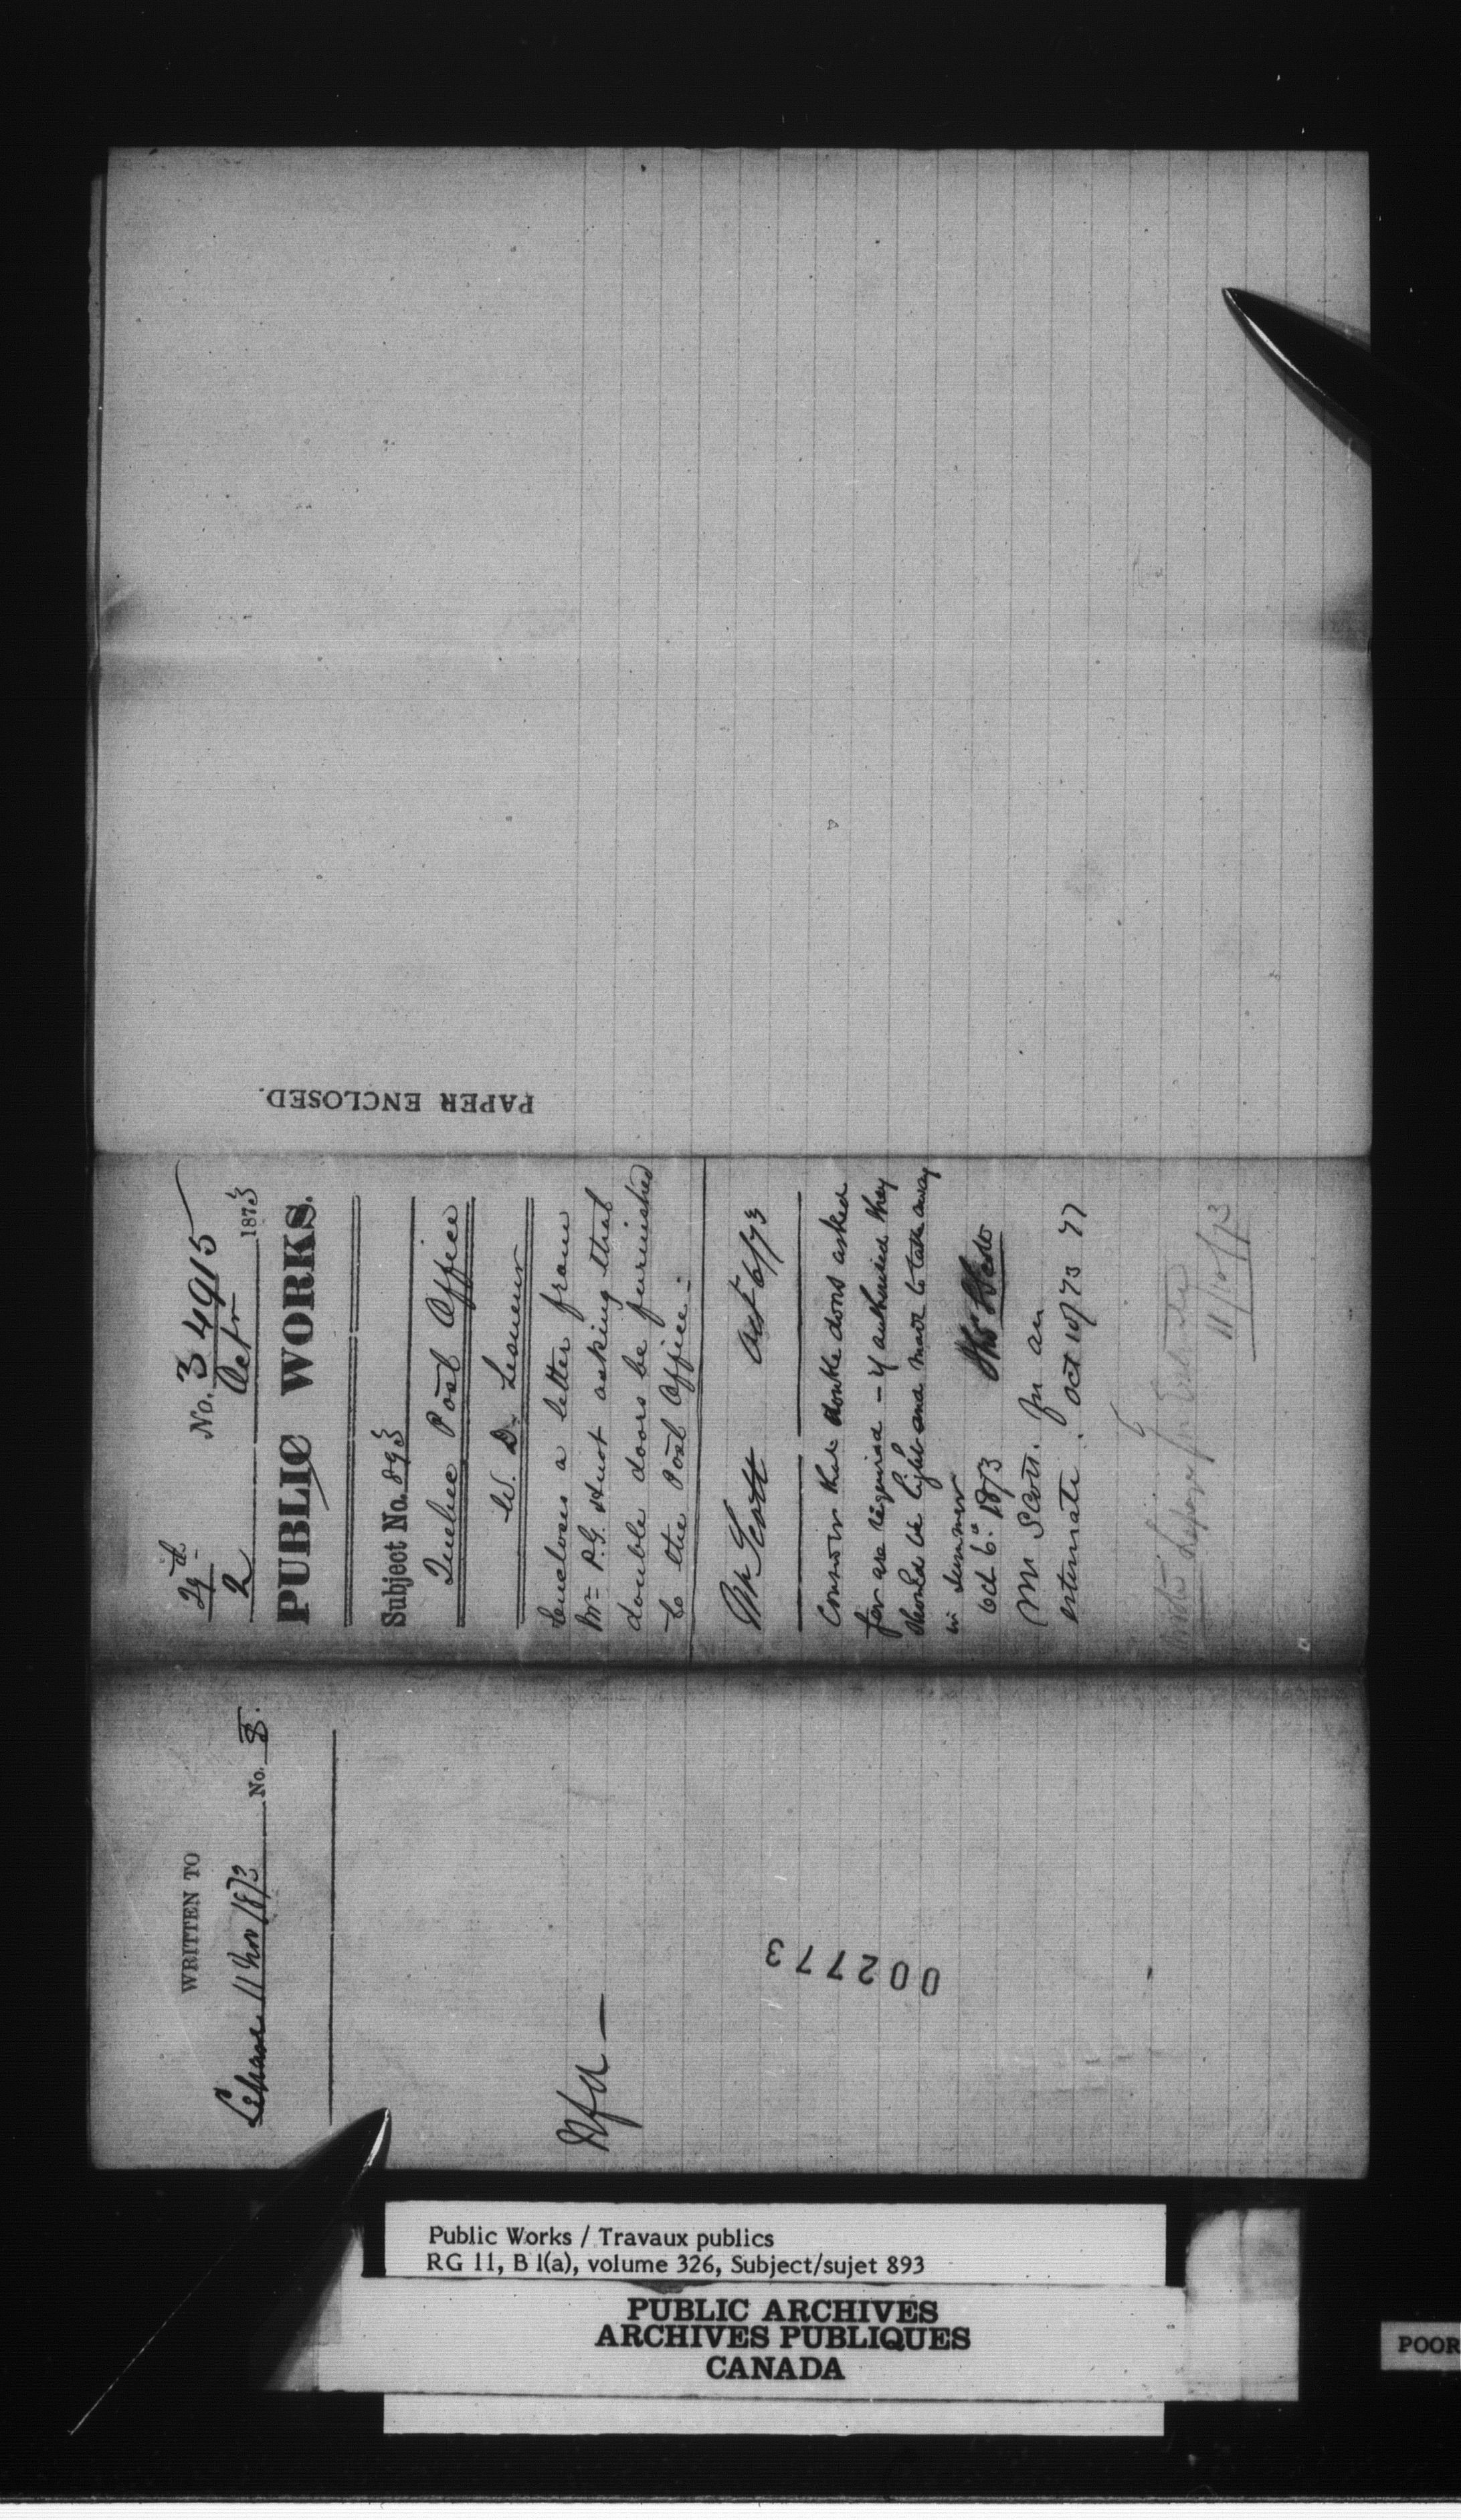 PAPER ENCLOSED.
29th
2
No. 34915
Octr 1873
PUBLIC WORKS.
Subject No. 893
Quebec Post Office
W. D. Lesueur
Encloses a letter from
Mr P.G. Huot asking that
double doors be furnished
to the Post Office.
Mr Scott Oct 6/73
Consider that double doors asked
for are required - if authorized they
should be light and made to take away
in summer
Oct 6th 1873 Thos Scott
Mr Scott. For an
estimate. Oct 10/73
for Estimate
11/10/73
WRITTEN TO
11 Nov 1873 No. 8.
Nfa —
002773
Public Works / Travaux publics
RG 11, B 1(a), volume 326, Subject/sujet 893
PUBLIC ARCHIVES
ARCHIVES PUBLIQUES
CANADA
POOR